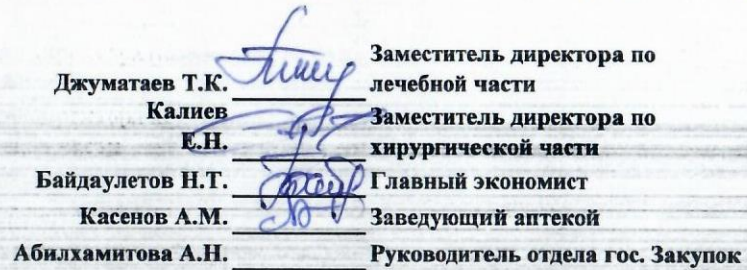 Заместитель директора по
Джуматаев Т.К. лечебной части
Калиев Заместитель директора по
Е.Н. хирургической части
Байдаулетов Н.Т. Главный экономист
Касенов А.М. Заведующий аптекой
Абилхамитова А.Н. Руководитель отдела гос. Закупок